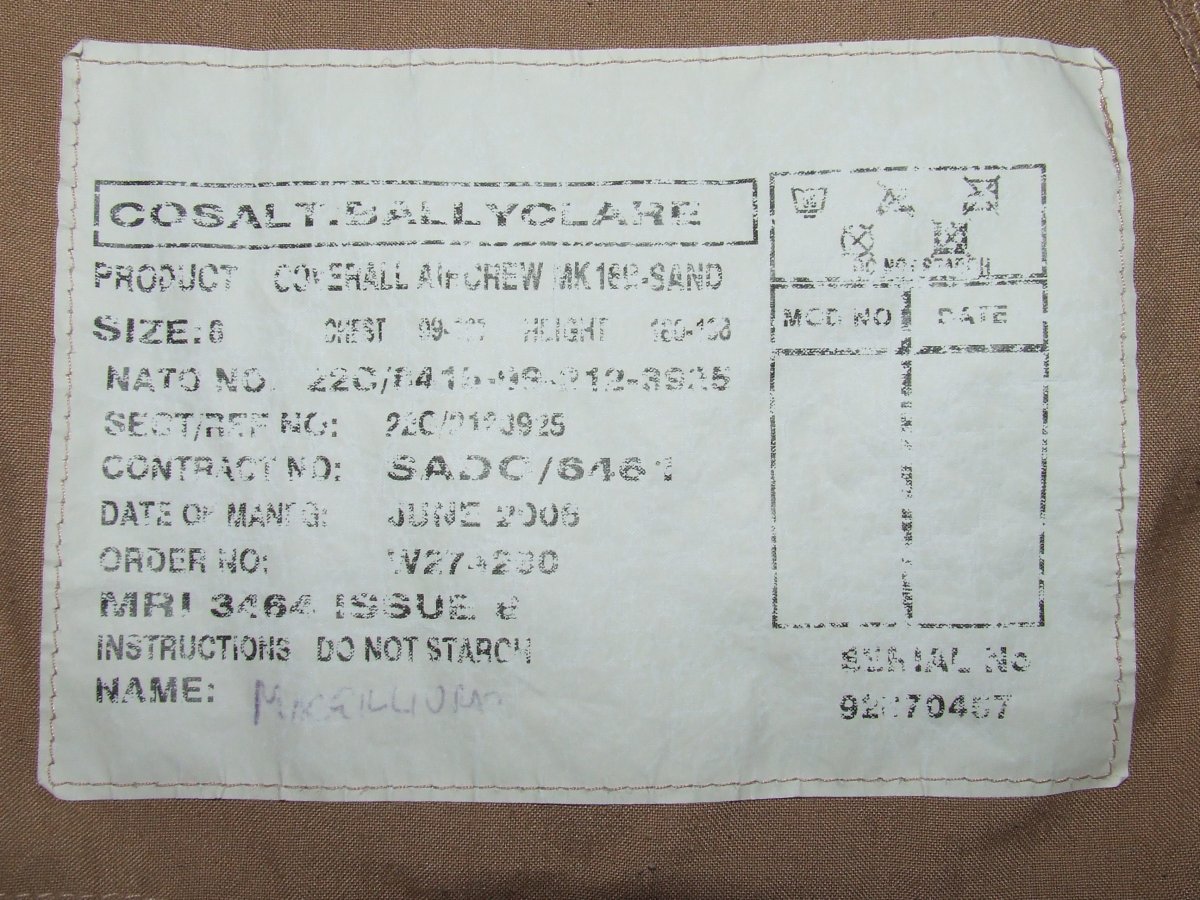 COSALT-BALLYCLARE
PRODUCT COVERALL AIRCREW MK 16B-SAND
SIZE: 6 CHEST HEIGHT
NATO NO. 22C/8415-99-212-3925
SECT/REF NO: 22C/2123925
CONTRACT NO: SADC/6461
DATE OF MANFG: JUNE 2006
ORDER NO:
MRI 3464 ISSUE 6
INSTRUCTIONS DO NOT STARCH
NAME:
DO NOT STARCH
MOD NO DATE
SERIAL No